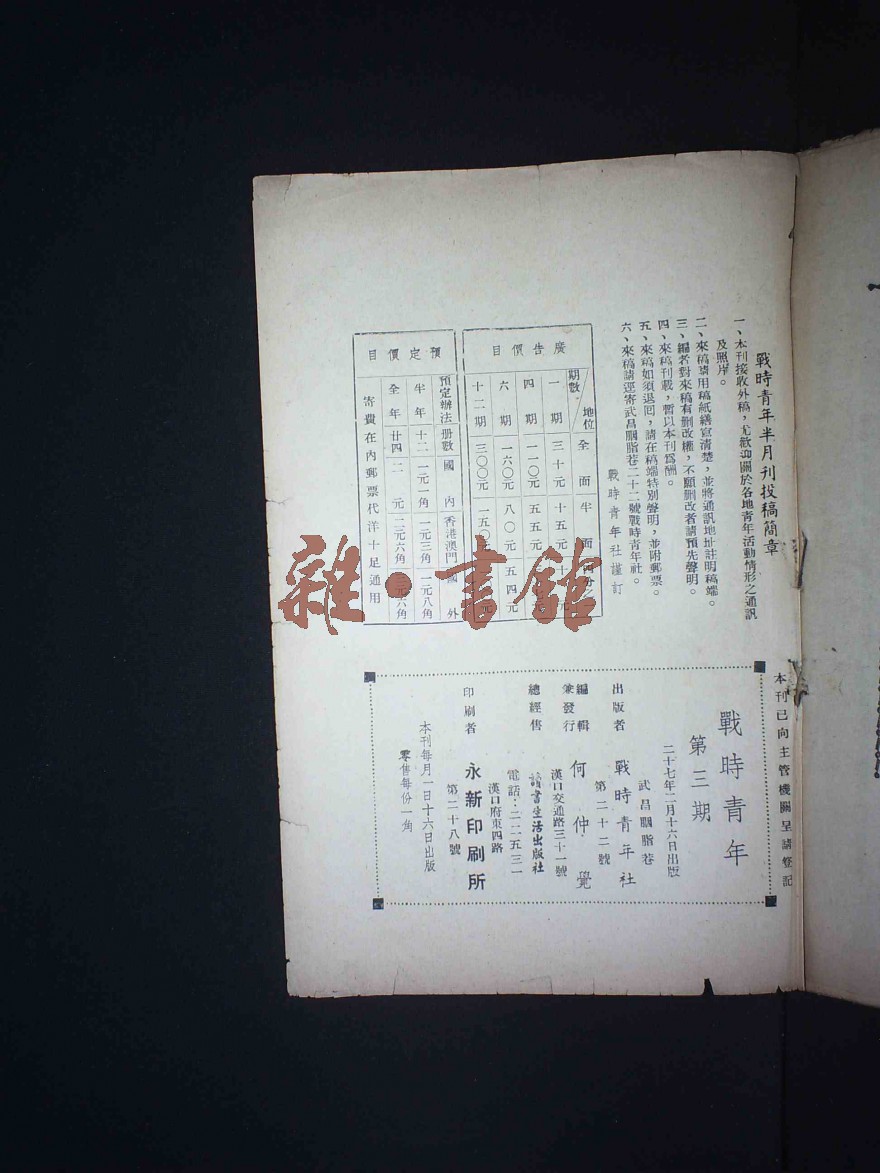 戰時青年半月刊投稿簡章
一、本刊接收外稿，尤歡迎關於各地青年活動情形之通訊
及照片。
二、來稿請用稿紙繕寫清楚，並將通訊地址註明稿端。
三、編者對來稿有删改權，不願删改者請預先聲明。
四、來稿刊載，暫以本刊爲酬。
五、來稿如須退回，請在稿端特別聲明，並附郵票。
六、來稿請逕寄武昌胭脂巷二十二號戰時青年社。
戰時青年社謹訂
廣告價目
期數 地位 全面 半面
一期 三十元 十五元
四期 一一〇元 五五元
六期 一六〇元 八〇元 五四元
十二期 三〇〇元 一五〇元
預定價目
預定辦法 册數 國內 香港澳門 國外
半年 十二 一元一角 一元三角 一元八角
全年 廿四 二元 二元六角 三元六角
寄費在內郵票代洋十足通用
雜·書館
本刊已向主管機關呈請登記
戰時青年
第三期
二十七年二月十六日出版
武昌胭脂巷
第二十二號
出版者 戰時青年社
編輯
兼發行 何仲覺
漢口交通路三十一號
總經售 讀書生活出版社
電話：二二五三一
漢口府東四路
第二十八號
印刷者 永新印刷所
本刊每月一日十六日出版
零售每份一角